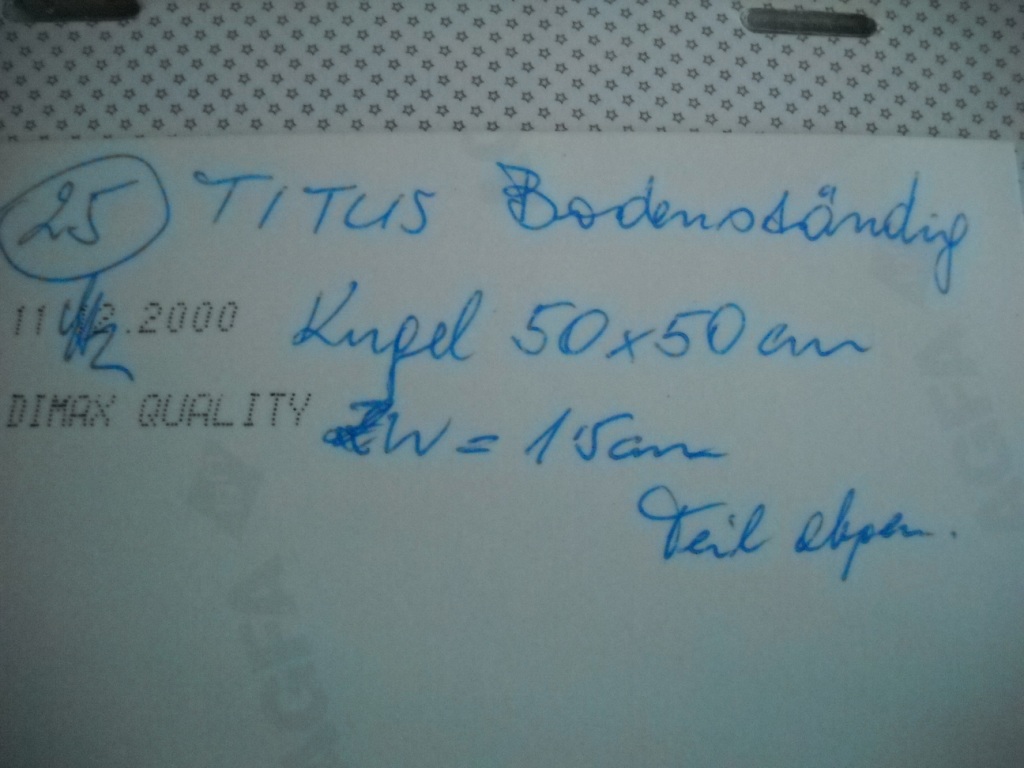 25 TITUS Bodenständig
11 .2000 Kugel 50x50 cm
DIMAX QUALITY ZW = 15cm
Teil
AGFA
AGFA